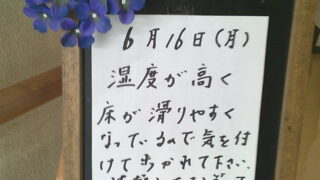 6月16日(月)
湿度が高く
床が滑りやすく
なっているので気を付
けて歩かれて下さい。